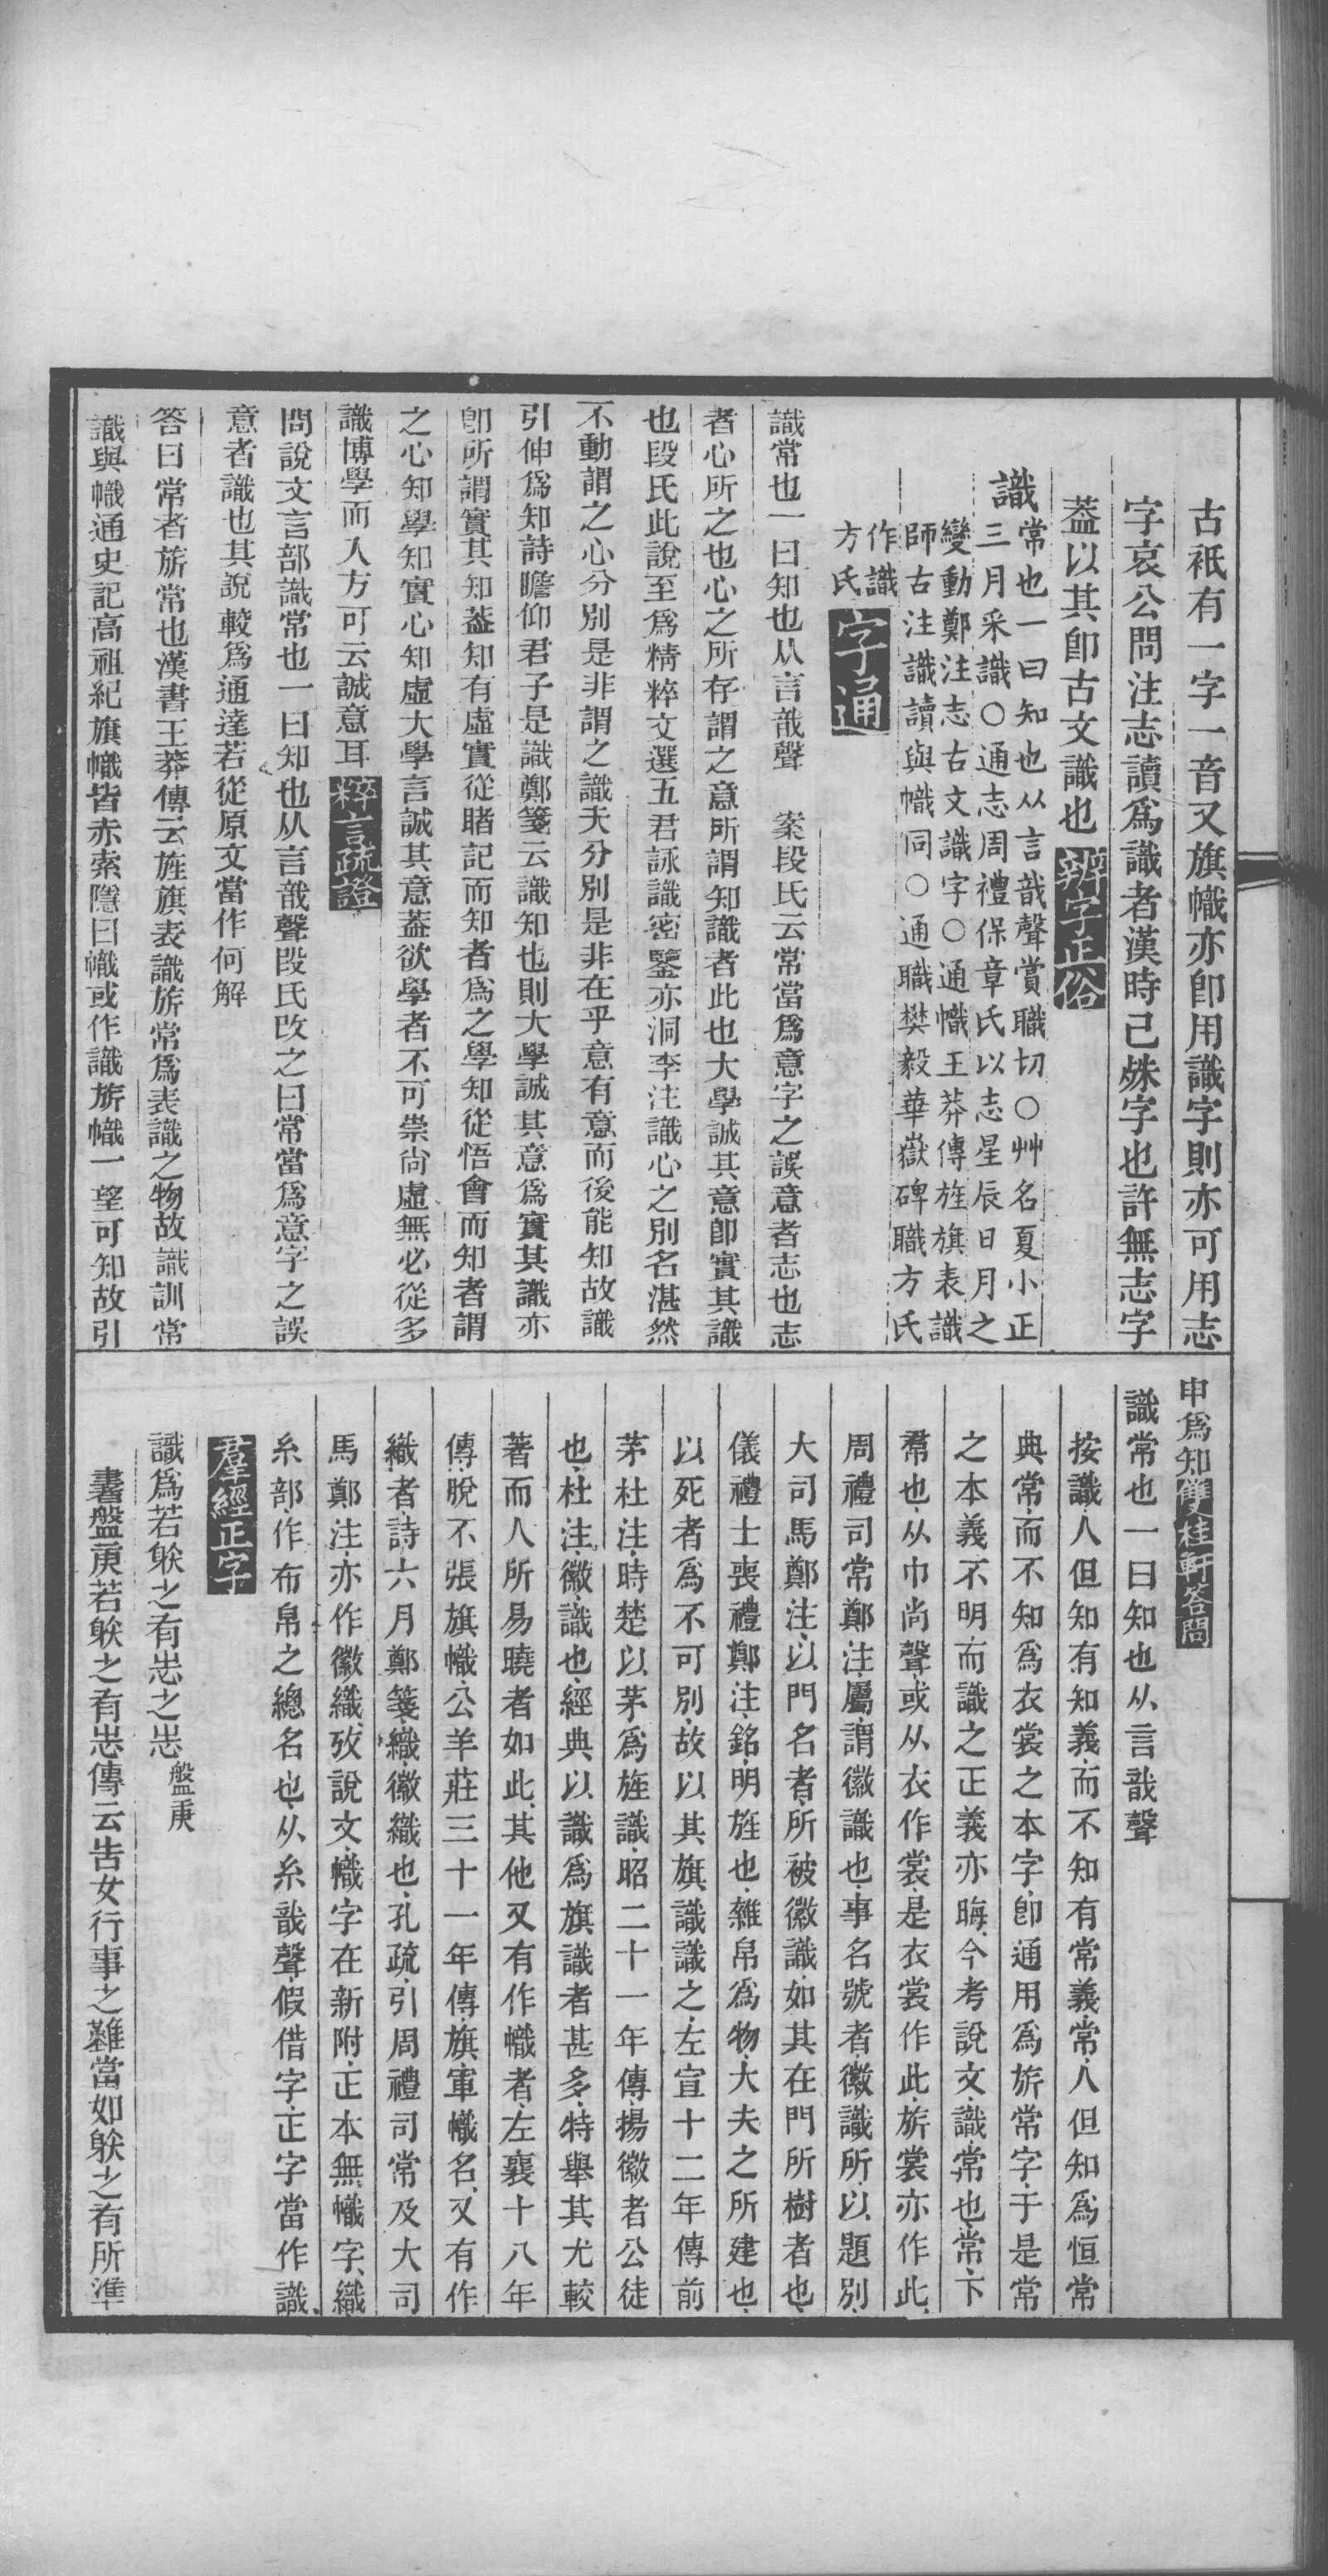 古衹有一字一音又旗幟亦卽用識字則亦可用志
字哀公問注志讀爲識者漢時已殊字也許無志字
葢以其卽古文識也辨字正俗
識常也一曰知也从言戠聲賞職切○艸名夏小正
三月采識○通志周禮保章氏以志星辰日月之
變動鄭注志古文識字○通幟王莽傳旌旗表識
師古注識讀與幟同○通職樊毅華嶽碑職方氏
作識
方氏字通
識常也一曰知也从言戠聲　案段氏云常當爲意字之誤意者志也志
者心所之也心之所存謂之意所謂知識者此也大學誠其意卽實其識
也段氏此說至爲精粹文選五君詠識密鑒亦洞李注識心之別名湛然
不動謂之心分別是非謂之識夫分別是非在乎意有意而後能知故識
引伸爲知詩瞻仰君子是識鄭箋云識知也則大學誠其意爲實其識亦
卽所謂實其知葢知有虛實從睹記而知者爲之學知從悟會而知者謂
之心知學知實心知虛大學言誠其意葢欲學者不可崇尙虛無必從多
識博學而入方可云誠意耳粹言疏證
問說文言部識常也一曰知也从言戠聲段氏改之曰常當爲意字之誤
意者識也其說較爲通達若從原文當作何解
答曰常者旂常也漢書王莽傳云旌旗表識旂常爲表識之物故識訓常
識與幟通史記高祖紀旗幟皆赤索隱曰幟或作識旂幟一望可知故引
申爲知雙桂軒答問
識常也一曰知也从言戠聲
按識人但知有知義而不知有常義常人但知爲恒常
典常而不知爲衣裳之本字卽通用爲旂常字于是常
之本義不明而識之正義亦晦今考說文識常也常下
帬也从巾尙聲或从衣作裳是衣裳作此旂裳亦作此
周禮司常鄭注屬謂徽識也事名號者徽識所以題別
大司馬鄭注以門名者所被徽識如其在門所樹者也
儀禮士喪禮鄭注銘明旌也雜帛爲物大夫之所建也
以死者爲不可別故以其旗識識之左宣十二年傳前
茅杜注時楚以茅爲旌識昭二十一年傳揚徽者公徒
也杜注徽識也經典以識爲旗識者甚多特舉其尤較
著而人所易曉者如此其他又有作幟者左襄十八年
傳脫不張旗幟公羊莊三十一年傳旗軍幟名又有作
織者詩六月鄭箋織徽織也孔疏引周禮司常及大司
馬鄭注亦作徽織攷說文幟字在新附正本無幟字織
糸部作布帛之總名也从糸戠聲假借字正字當作識
羣經正字
識爲若躲之有志之志盤庚
書盤庚若躲之有志傳云告女行事之難當如躲之有所準